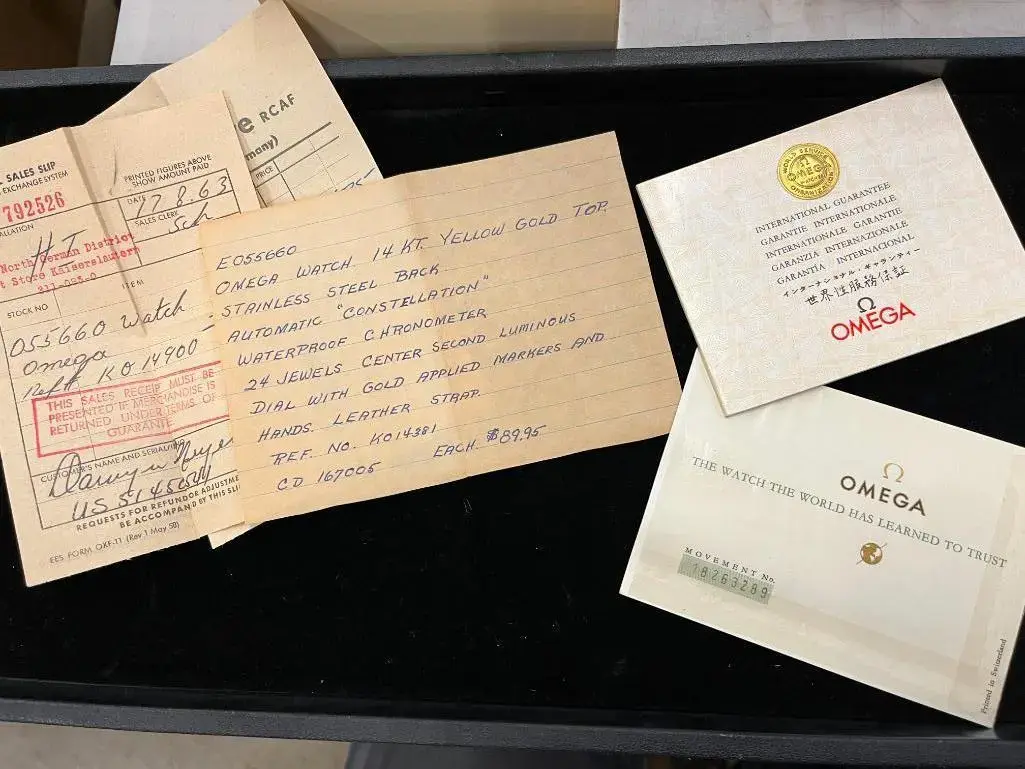 . SALES SLIP
EXCHANGE SYSTEM
792526
PRINTED FIGURES ABOVE
SHOW AMOUNT PAID
DATE
17.8.63
SALES CLERK
Sch
North German District
Store Kaiserslautern
211-025-0
STOCK NO
ITEM
055660 Watch
Omega
Ref# KO 14900
THIS SALES RECEIP MUST BE
PRESENTED IF MERCHANDISE IS
RETURNED UNDER TERMS OF
GUARANTE
CUSTOMER'S NAME AND SERIAL
REQUESTS FOR REFUND OR ADJUSTME
BE ACCOMPAN D BY THIS SLI
EES FORM OXF-11 (Rev 1 May 58)
e RCAF
many)
PRICE
E055660
OMEGA WATCH 14 KT. YELLOW GOLD TOP.
STAINLESS STEEL BACK
AUTOMATIC "CONSTELLATION"
WATERPROOF CHRONOMETER
24 JEWELS CENTER SECOND LUMINOUS
DIAL WITH GOLD APPLIED MARKERS AND
HANDS. LEATHER STRAP.
REF. NO. KO14381
CD 167005 EACH $89.95
WORLD SERVICE
Ω
OMEGA
ORGANIZATION
INTERNATIONAL GUARANTEE
GARANTIE INTERNATIONALE
INTERNATIONALE GARANTIE
GARANZIA INTERNAZIONALE
GARANTÍA INTERNACIONAL
インターナショナル・ギャランティー
世界性服務保証
Ω
OMEGA
Ω
OMEGA
THE WATCH THE WORLD HAS LEARNED TO TRUST
MOVEMENT No.
18263289
Printed in Switzerland